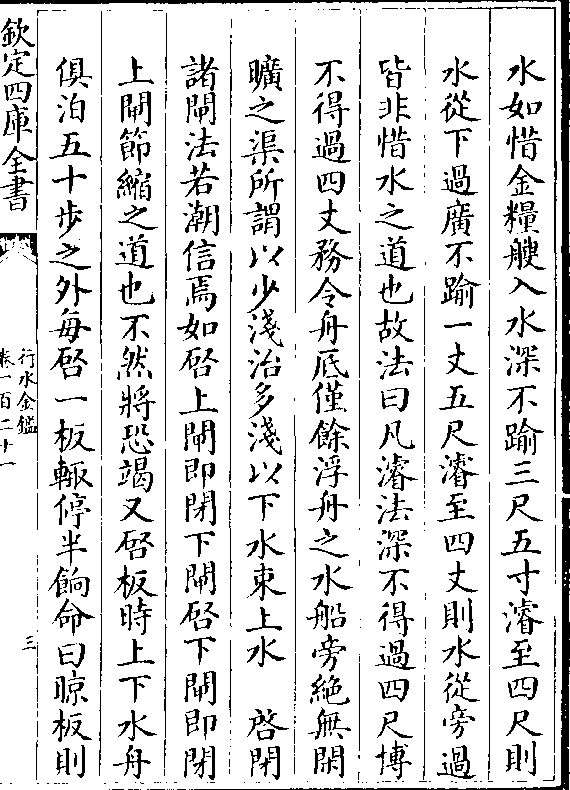 水如惜金糧艘入水深不踰三尺五寸濬至四尺則
水從下過廣不踰一丈五尺濬至四丈則水從旁過
皆非惜水之道也故法曰凡濬法深不得過四尺博
不得過四丈務令舟底僅餘浮舟之水船旁絶無閑
曠之渠所謂以少淺治多淺以下水束上水　啓閉
諸閘法若潮信焉如啓上閘即閉下閘啓下閘即閉
上閘節縮之道也不然將恐竭又啓板時上下水舟
俱泊五十步之外每啓一板輙停半餉命曰晾板則
欽定四庫全書
行水金鑑
卷一百二十一
三